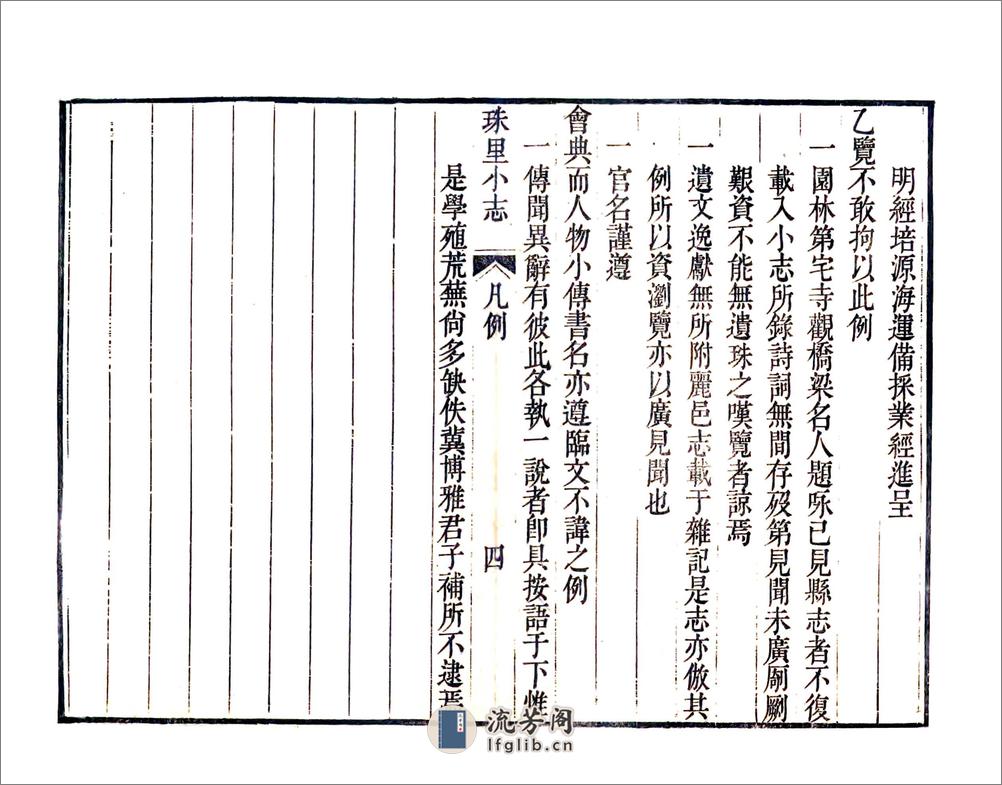 明經培源海運備採業經進呈
乙覽不敢拘以此例
一園林第宅寺觀橋梁名人題咏已見縣志者不復
載入小志所錄詩詞無間存歿第見聞未廣剞劂
艱資不能無遺珠之嘆覽者諒焉
一遺文逸獻無所附麗邑志載于雜記是志亦倣其
例所以資瀏覽亦以廣見聞也
一官名謹遵
會典而人物小傳書名亦遵臨文不諱之例
一傳聞異辭有彼此各執一說者卽具按語于下惟
珠里小志 凡例 四
是學殖荒蕪尙多缺佚冀博雅君子補所不逮焉
流芳阁
lfglib.cn